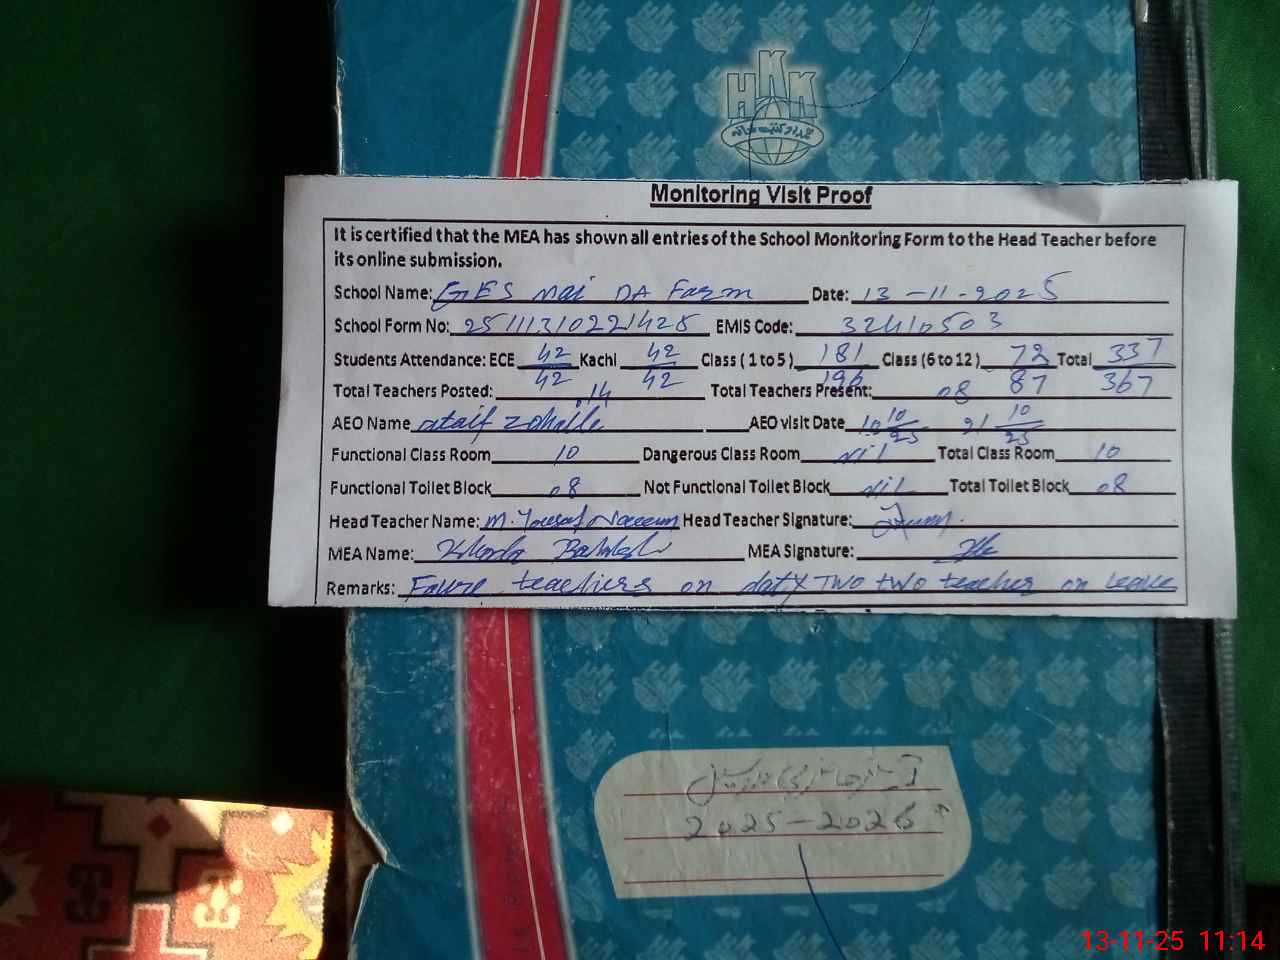 HKK
Monitoring Visit Proof
It is certified that the MEA has shown all entries of the School Monitoring Form to the Head Teacher before
its online submission.
School Name: GES Mai DA Farm Date: 13-11-2025
School Form No: EMIS Code: 32410503
Students Attendance: ECE 42/42 Kachi 42/42 Class (1 to 5) 181/196 Class (6 to 12) 72/87 Total 337/367
Total Teachers Posted: 14 Total Teachers Present: 08
AEO Name AEO visit Date 10 10/25 21 10/25
Functional Class Room 10 Dangerous Class Room Nil Total Class Room 10
Functional Toilet Block 08 Not Functional Toilet Block Nil Total Toilet Block 08
Head Teacher Name: M. Yousaf Naeem Head Teacher Signature:
MEA Name: MEA Signature:
Remarks: Foure teachers on daty Two two teacher on Leave
2025-2026
13-11-25 11:14